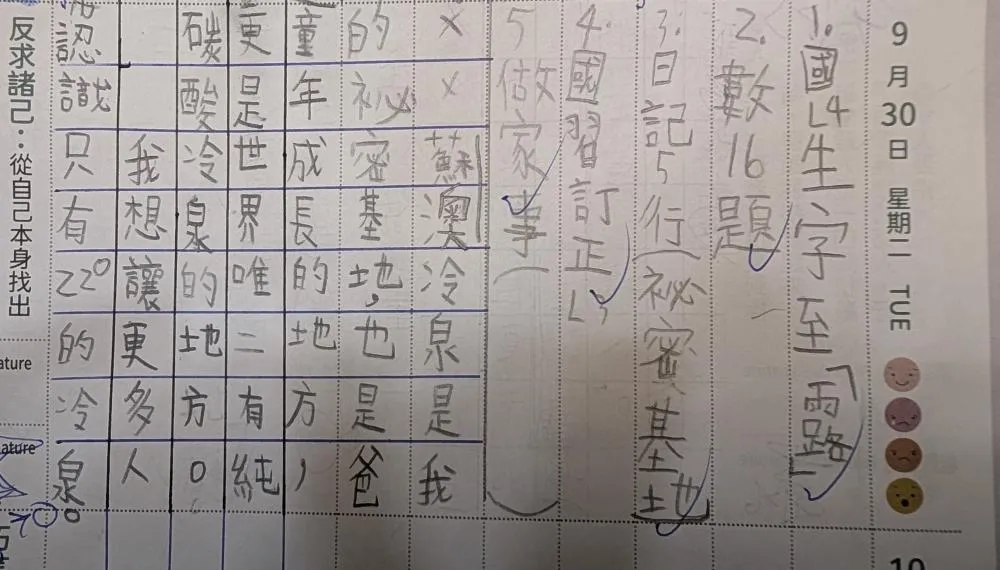 9月30日 星期二 TUE
1.國L4生字至「雨路」
2.數16題
3.日記5行(祕密基地)
4.國習訂正L3
5做家事( )
××蘇澳冷泉是我
的祕密基地，也是爸
童年成長的地方，
更是世界唯二有純
碳酸冷泉的地方。
我想讓更多人
認識只有22°的冷泉。
反求諸己：從自己本身找出
ature
ature
10